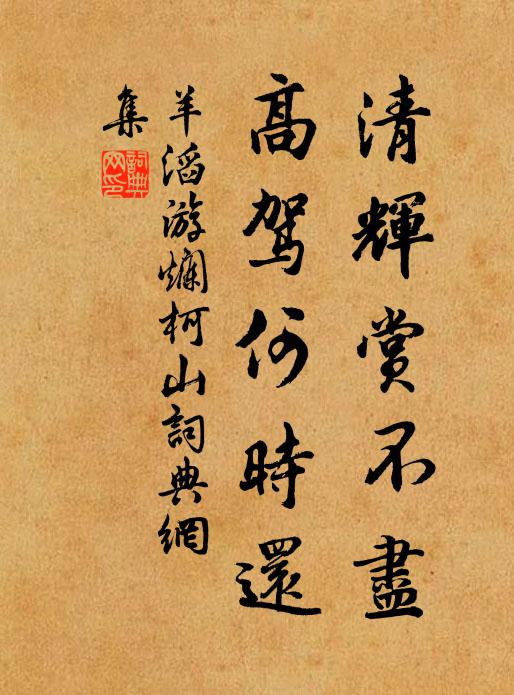 清輝賞不盡
高駕何時還
羊滔游爛柯山詞典網
集
詞典網印